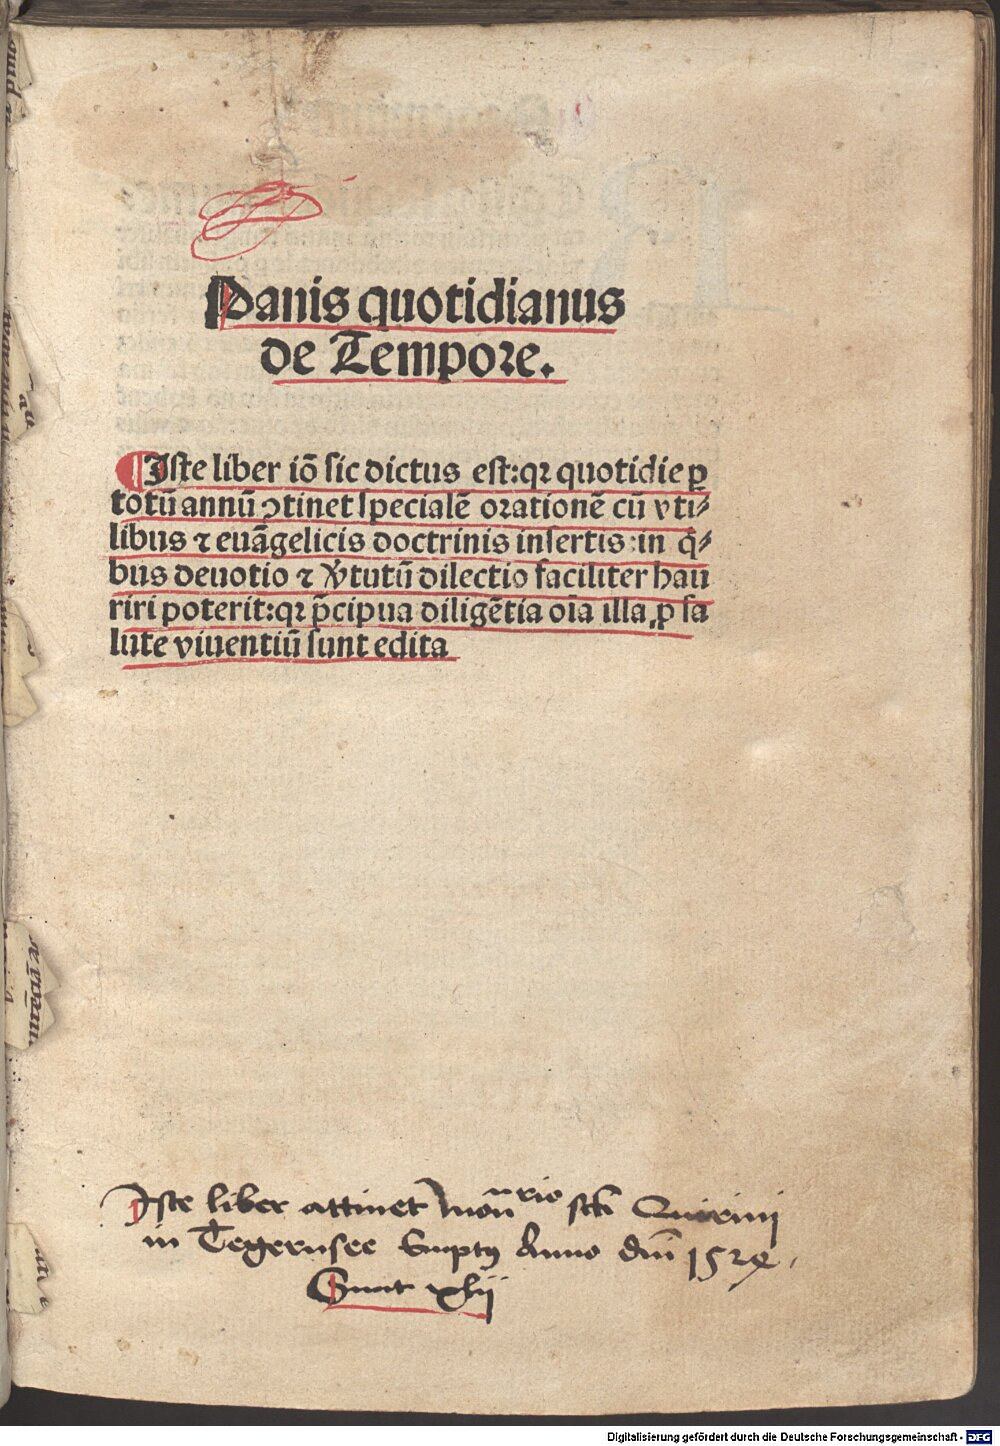 Panis quotidianus
de Tempore.
¶ Iste liber iō sic dictus est:qꝛ quotidie ꝑ
totū annū ꝯtinet specialē orationē cū vti⸗
libus ⁊ euāgelicis doctrinis insertis:in q̄⸗
bus deuotio ⁊ v̓tutū dilectio faciliter hau
riri poterit:qꝛ p̄cipua diligētia oīa illa ꝓ sa
lute viuentiū sunt edita
Iste liber attinet Mon rio scti Quirini
in Tegernsee Emptꝰ Anno dnī 1524.
xlij
Digitalisierung gefördert durch die Deutsche Forschungsgemeinschaft - DFG